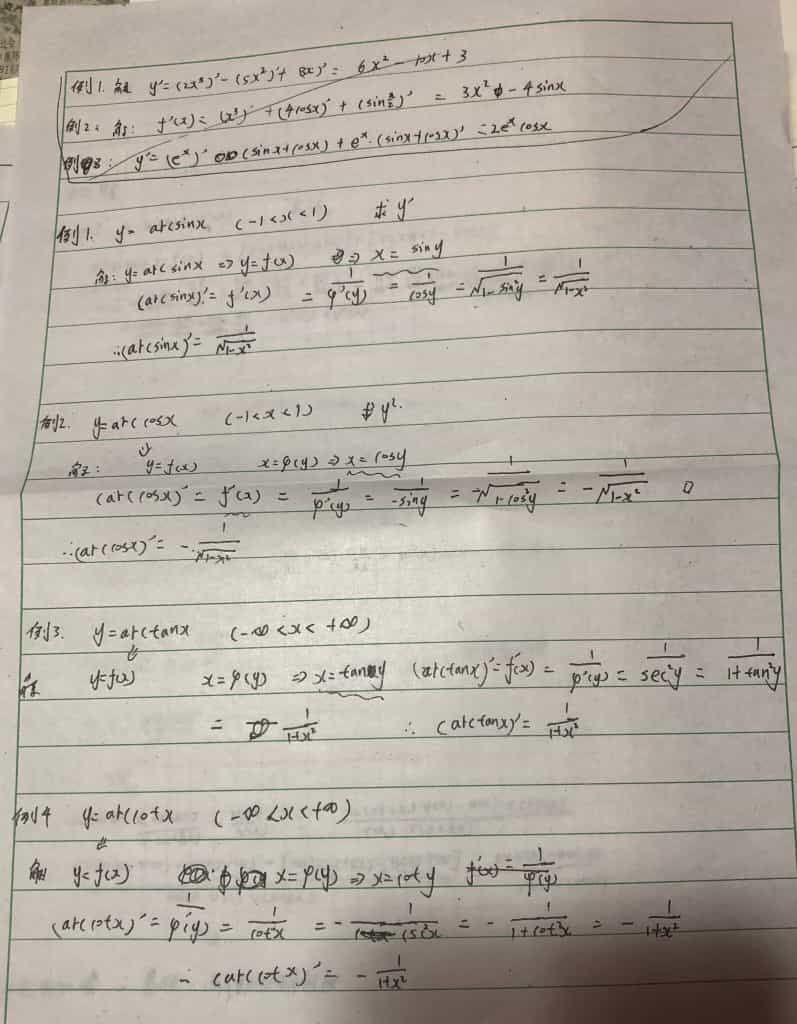 例1. 解 y'=(2x³)'-(5x²)'+(3x)'= 6x²-10x+3
例2: 解: f'(x)=(x³)'+(4cosx)'+(sin π/2)' = 3x²-4sinx
例3: y'=(eˣ)'(sinx+cosx)+eˣ·(sinx+cosx)'=2eˣcosx
例1. y=arcsinx (-1<x<1) 求y'
解: y=arcsinx => y=f(x) => x=siny
(arcsinx)'=f'(x) = 1/φ'(y) = 1/cosy = 1/√1-sin²y = 1/√1-x²
∴(arcsinx)'= 1/√1-x²
例2. y=arccosx (-1<x<1) 求y'.
解: y=f(x) x=φ(y) => x=cosy
(arccosx)'=f'(x) = 1/φ'(y) = 1/-siny = -1/√1-cos²y = -1/√1-x²
∴(arccosx)'= -1/√1-x²
例3. y=arctanx (-∞<x<+∞)
解 y=f(x) x=φ(y) => x=tany (arctanx)'=f'(x)= 1/φ'(y) = 1/sec²y = 1/1+tan²y
= 1/1+x² ∴ (arctanx)'= 1/1+x²
例4 y=arccotx (-∞<x<+∞)
解 y=f(x) x=φ(y) => x=cot y f'(x)=1/φ'(y)
(arccotx)'= 1/φ'(y) = 1/cot'x = -1/csc²x = -1/1+cot²x = -1/1+x²
∴ (arccotx)'= -1/1+x²